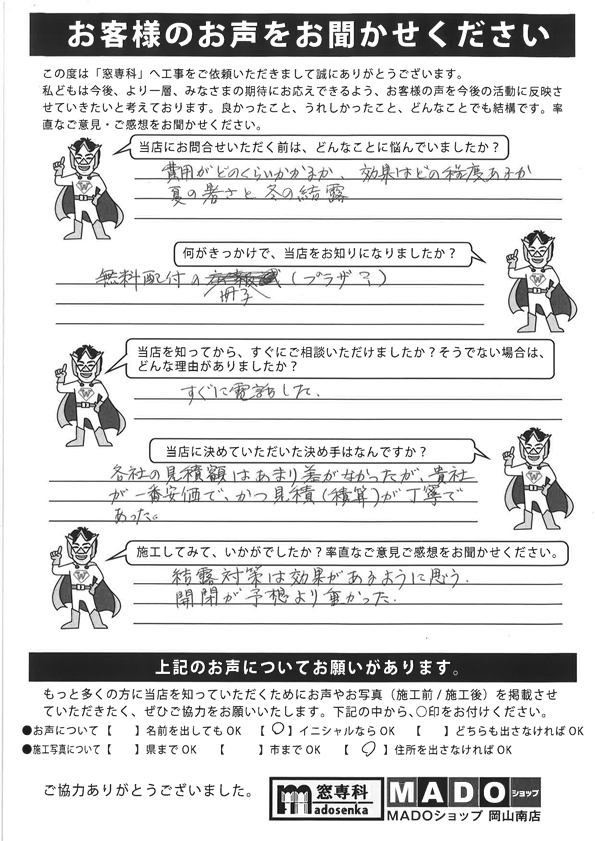 お客様のお声をお聞かせください
この度は「窓専科」へ工事をご依頼いただきまして誠にありがとうございます。
私どもは今後、より一層、みなさまの期待にお応えできるよう、お客様の声を今後の活動に反映さ
せていきたいと考えております。良かったこと、うれしかったこと、どんなことでも結構です。率
直なご意見・ご感想をお聞かせください。
当店にお問合せいただく前は、どんなことに悩んでいましたか？
費用がどのくらいかかるか、効果はどの程度あるか
夏の暑さと冬の結露
何がきっかけで、当店をお知りになりましたか？
無料配付の (プラザ?)
冊子
当店を知ってから、すぐにご相談いただけましたか？そうでない場合は、
どんな理由がありましたか？
すぐに電話した、
当店に決めていただいた決め手はなんですか？
各社の見積額はあまり差がなかったが、貴社
が一番安価で、かつ見積(積算)が丁寧で
あった。
施工してみて、いかがでしたか？率直なご意見ご感想をお聞かせください。
結露対策は効果があるように思う.
開閉が予想より重かった.
上記のお声についてお願いがあります。
もっと多くの方に当店を知っていただくためにお声やお写真（施工前 / 施工後）を掲載させ
ていただきたく、ぜひご協力をお願いいたします。下記の中から、○印をお付けください。
●お声について【　　】名前を出しても OK　【 ○ 】イニシャルなら OK　【　　】どちらも出さなければ OK
●施工写真について【　　】県まで OK　【　　】市まで OK　【 ○ 】住所を出さなければ OK
ご協力ありがとうございました。
窓専科
madosenka
MADO ショップ
MADOショップ 岡山南店